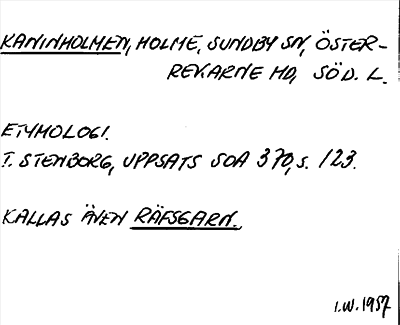 KANINHOLMEN, HOLME, SUNDBY SN, ÖSTER-
REKARNE HD, SÖD. L.
ETYMOLOGI.
T. STENBORG, UPPSATS SOA 370, S. 123.
KALLAS ÄVEN RÄFSGARN.
I.W. 1957